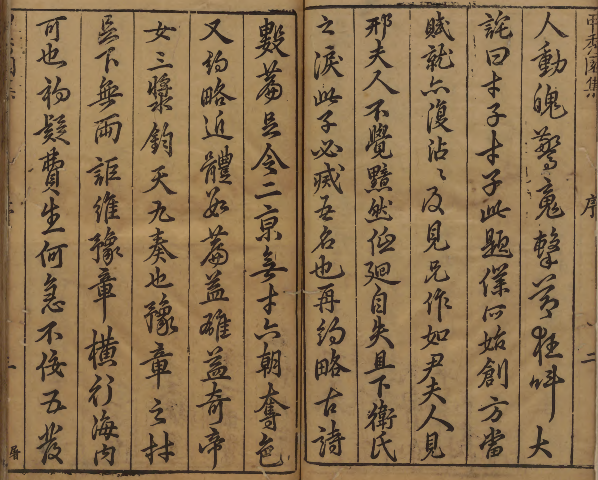 人動魄驚魂擊節狂叫大
詫曰才子才子此題僕心始創方當
賦就亦復沾沾及見兄作如尹夫人見
邢夫人不覺黯然低廻自失且下衛氏
之淚此子必滅吾名也再約略古詩
數篇足令二京無才六朝奪色
又約略近體如篇益雄益奇帝
女三漿鈞天九奏也豫章之材
足下無兩詎維豫章橫行海內
可也初疑費生何急不佞不發
序
二